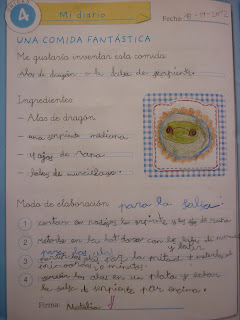 4 Mi diario Fecha: 19-11-2012
UNA COMIDA FANTÁSTICA
Me gustaría inventar esta comida:
Alas de dragón a la salsa de serpiente.
Ingredientes:
- Alas de dragón
- una serpiente mediana
- y ojos de rana
- babas de murciélago.
Modo de elaboración: para la salsa:
1 cortar en rodajas la serpiente y los ojos de rana
2 meterlo en la batidora con las babas de
y batir
para las alas
3 por la mitad y meterlas al
minutos.
4 las alas en un plato y echar
la salsa de serpiente por encima.
Firma: Natalia